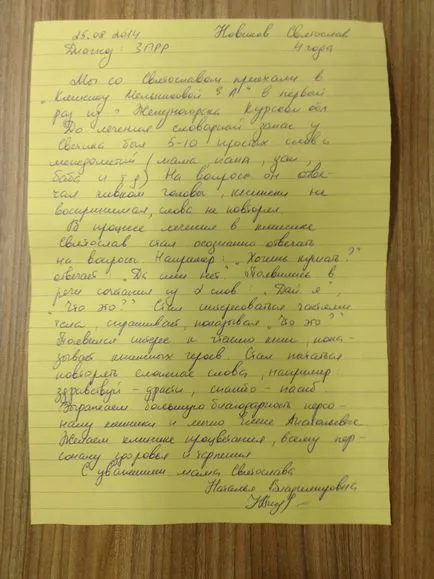 25.08.2014 Новиков Святослав
Диагноз: ЗПРР 4 года
Мы со Святославом приехали в
"Клинику Мельниковой Е А" в первый
раз из г Железногорска Курской обл
До лечения словарный запас у
Светика был 5-10 простых слов и
междометий (мама, папа, дай,
баба и т д) На вопросы он отве-
чал кивком головы, книжки не
воспринимал, слова не повторял
В процессе лечения в клинике
Святослав стал осознанно отвечать
на вопросы Например: "Хочешь кушать?"
отвечает "Да или нет" Появились в
речи сочетания из 2 слов: "Дай я",
"Что это?" Стал интересоваться частями
тела, спрашивает, показывая "Что это?"
Появился интерес к чтению книг, пока-
зывает книжных героев Стал пытаться
повторять сложные слова, например:
здравствуй - драсти, спасибо - пасиб
Выражаем большую благодарность персо
налу клиники и лично Елене Анатольевне
Желаем клинике процветания, всему пер-
соналу здоровья и терпения
С уважением мама Святослава
Наталья Владимировна